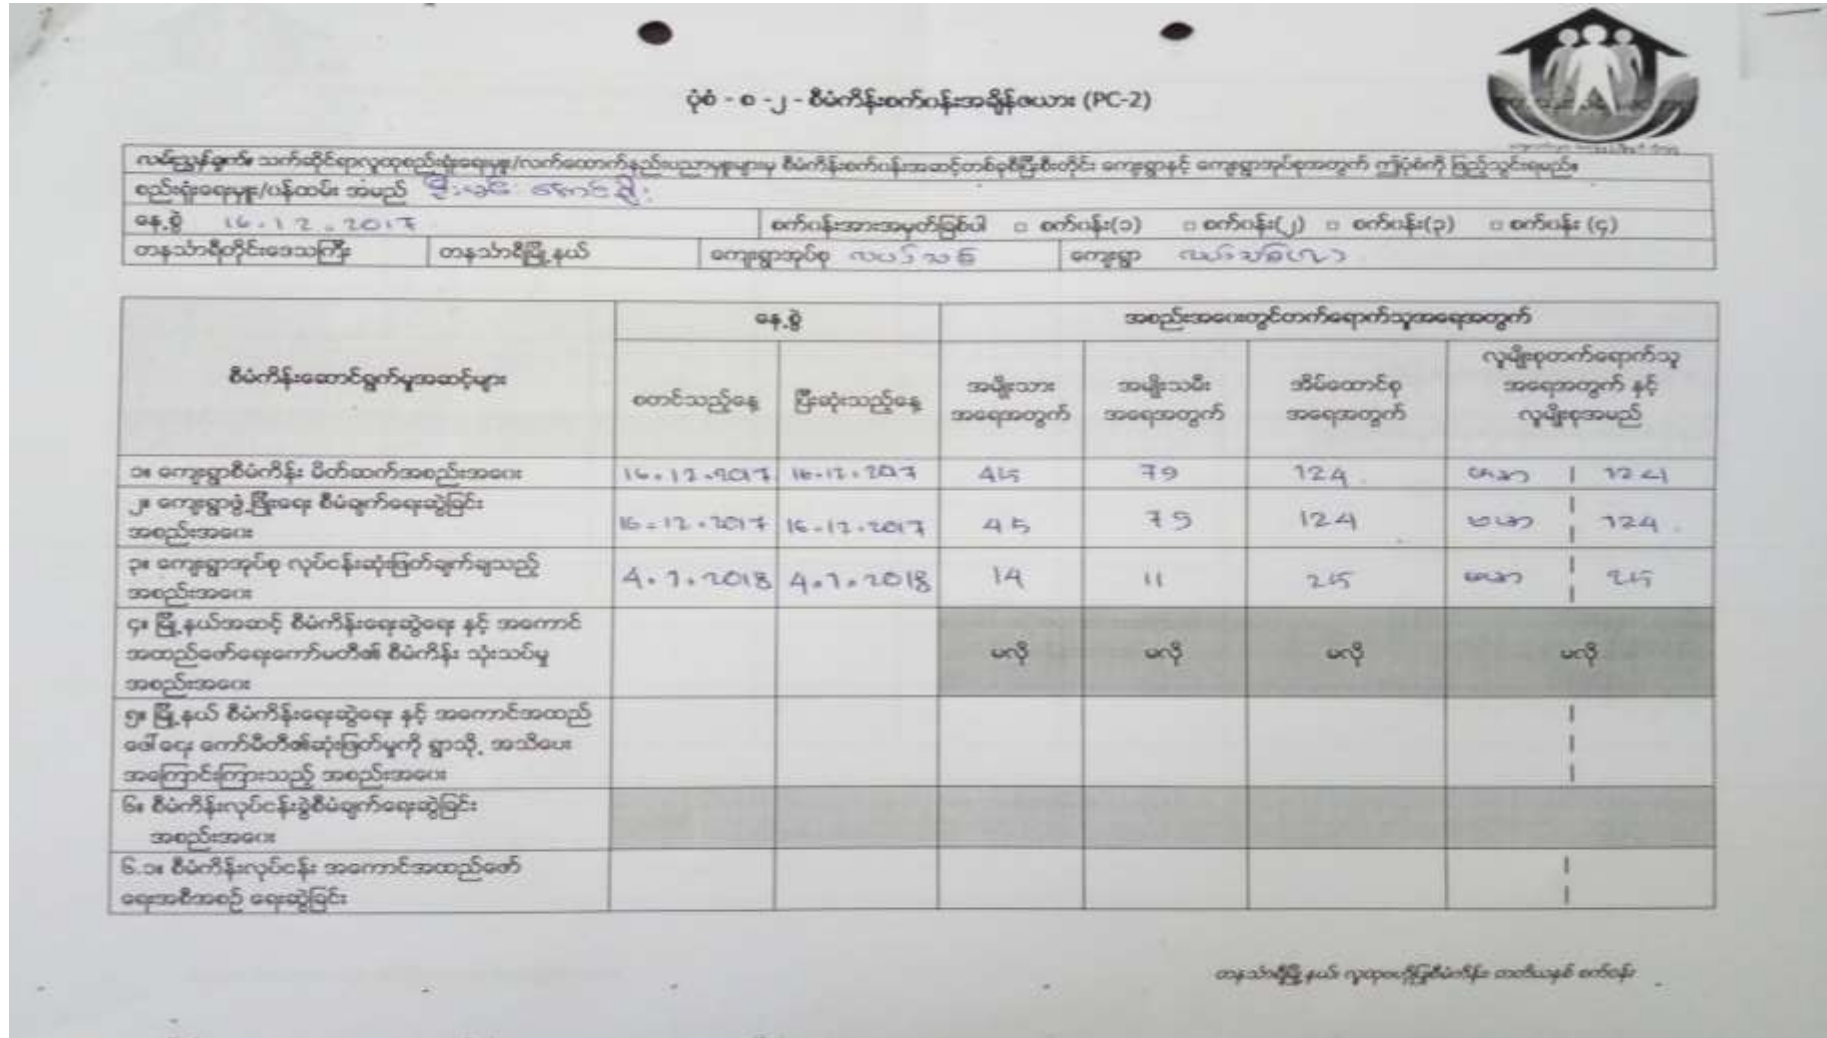 ပုံစံ - စ -၂ - စီမံကိန်းစက်ဝန်းအချိန်ဇယား (PC-2)
လမ်းညွှန်ချက်။ သက်ဆိုင်ရာလူထုစည်းရုံးရေးမှူး/လက်ထောက်နည်းပညာမှူးများမှ စီမံကိန်းစက်ဝန်းအဆင့်တစ်ခုစီပြီးစီးတိုင်း ကျေးရွာနှင့် ကျေးရွာအုပ်စုအတွက် ဤပုံစံကို ဖြည့်သွင်းရမည်။
စည်းရုံးရေးမှူး/ဝန်ထမ်း အမည်
နေ့စွဲ 16.12.2017 စက်ဝန်းအားအမှတ်ခြစ်ပါ □ စက်ဝန်း(၁) □ စက်ဝန်း(၂) □ စက်ဝန်း(၃) □ စက်ဝန်း (၄)
တနင်္သာရီတိုင်းဒေသကြီး တနင်္သာရီမြို့နယ် ကျေးရွာအုပ်စု ကျေးရွာ
နေ့စွဲ အစည်းအဝေးတွင်တက်ရောက်သူအရေအတွက်
စီမံကိန်းဆောင်ရွက်မှုအဆင့်များ
စတင်သည့်နေ့ ပြီးဆုံးသည့်နေ့
အမျိုးသား
အရေအတွက်
အမျိုးသမီး
အရေအတွက်
အိမ်ထောင်စု
အရေအတွက်
လူမျိုးစုတက်ရောက်သူ
အရေအတွက် နှင့်
လူမျိုးစုအမည်
၁။ ကျေးရွာစီမံကိန်း မိတ်ဆက်အစည်းအဝေး 16.12.2017 16.12.2017 45 79 124 ဗမာ 124
၂။ ကျေးရွာဖွံ့ဖြိုးရေး စီမံချက်ရေးဆွဲခြင်း
အစည်းအဝေး 16.12.2017 16.12.2017 45 79 124 ဗမာ 124
၃။ ကျေးရွာအုပ်စု လုပ်ငန်းဆုံးဖြတ်ချက်ချသည့်
အစည်းအဝေး 4.1.2018 4.1.2018 14 11 25 ဗမာ 25
၄။ မြို့နယ်အဆင့် စီမံကိန်းရေးဆွဲရေး နှင့် အကောင်
အထည်ဖော်ရေးကော်မတီ၏ စီမံကိန်း သုံးသပ်မှု မလို မလို မလို မလို
အစည်းအဝေး
၅။ မြို့နယ် စီမံကိန်းရေးဆွဲရေး နှင့် အကောင်အထည်
ဖေါ်ရေး ကော်မီတီ၏ဆုံးဖြတ်မှုကို ရွာသို့ အသိပေး
အကြောင်းကြားသည့် အစည်းအဝေး
၆။ စီမံကိန်းလုပ်ငန်းခွဲစီမံချက်ရေးဆွဲခြင်း
အစည်းအဝေး
၆.၁။ စီမံကိန်းလုပ်ငန်း အကောင်အထည်ဖော်
ရေးအစီအစဉ် ရေးဆွဲခြင်း
တနင်္သာရီမြို့နယ် လူထုဗဟိုပြုစီမံကိန်း တတိယနှစ် စက်ဝန်း